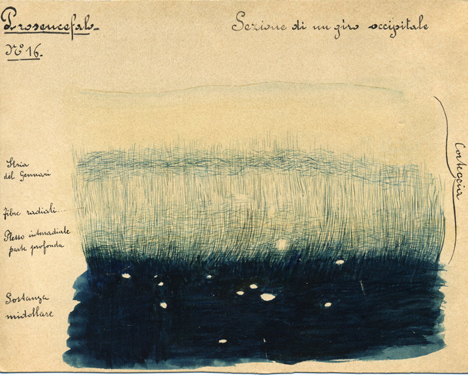 Prosencefalo
Sezione di un giro occipitale
N° 16.
Corteccia
Stria
del Gennari
Fibre radiali
Plesso interradiale
parte profonda
Sostanza
midollare